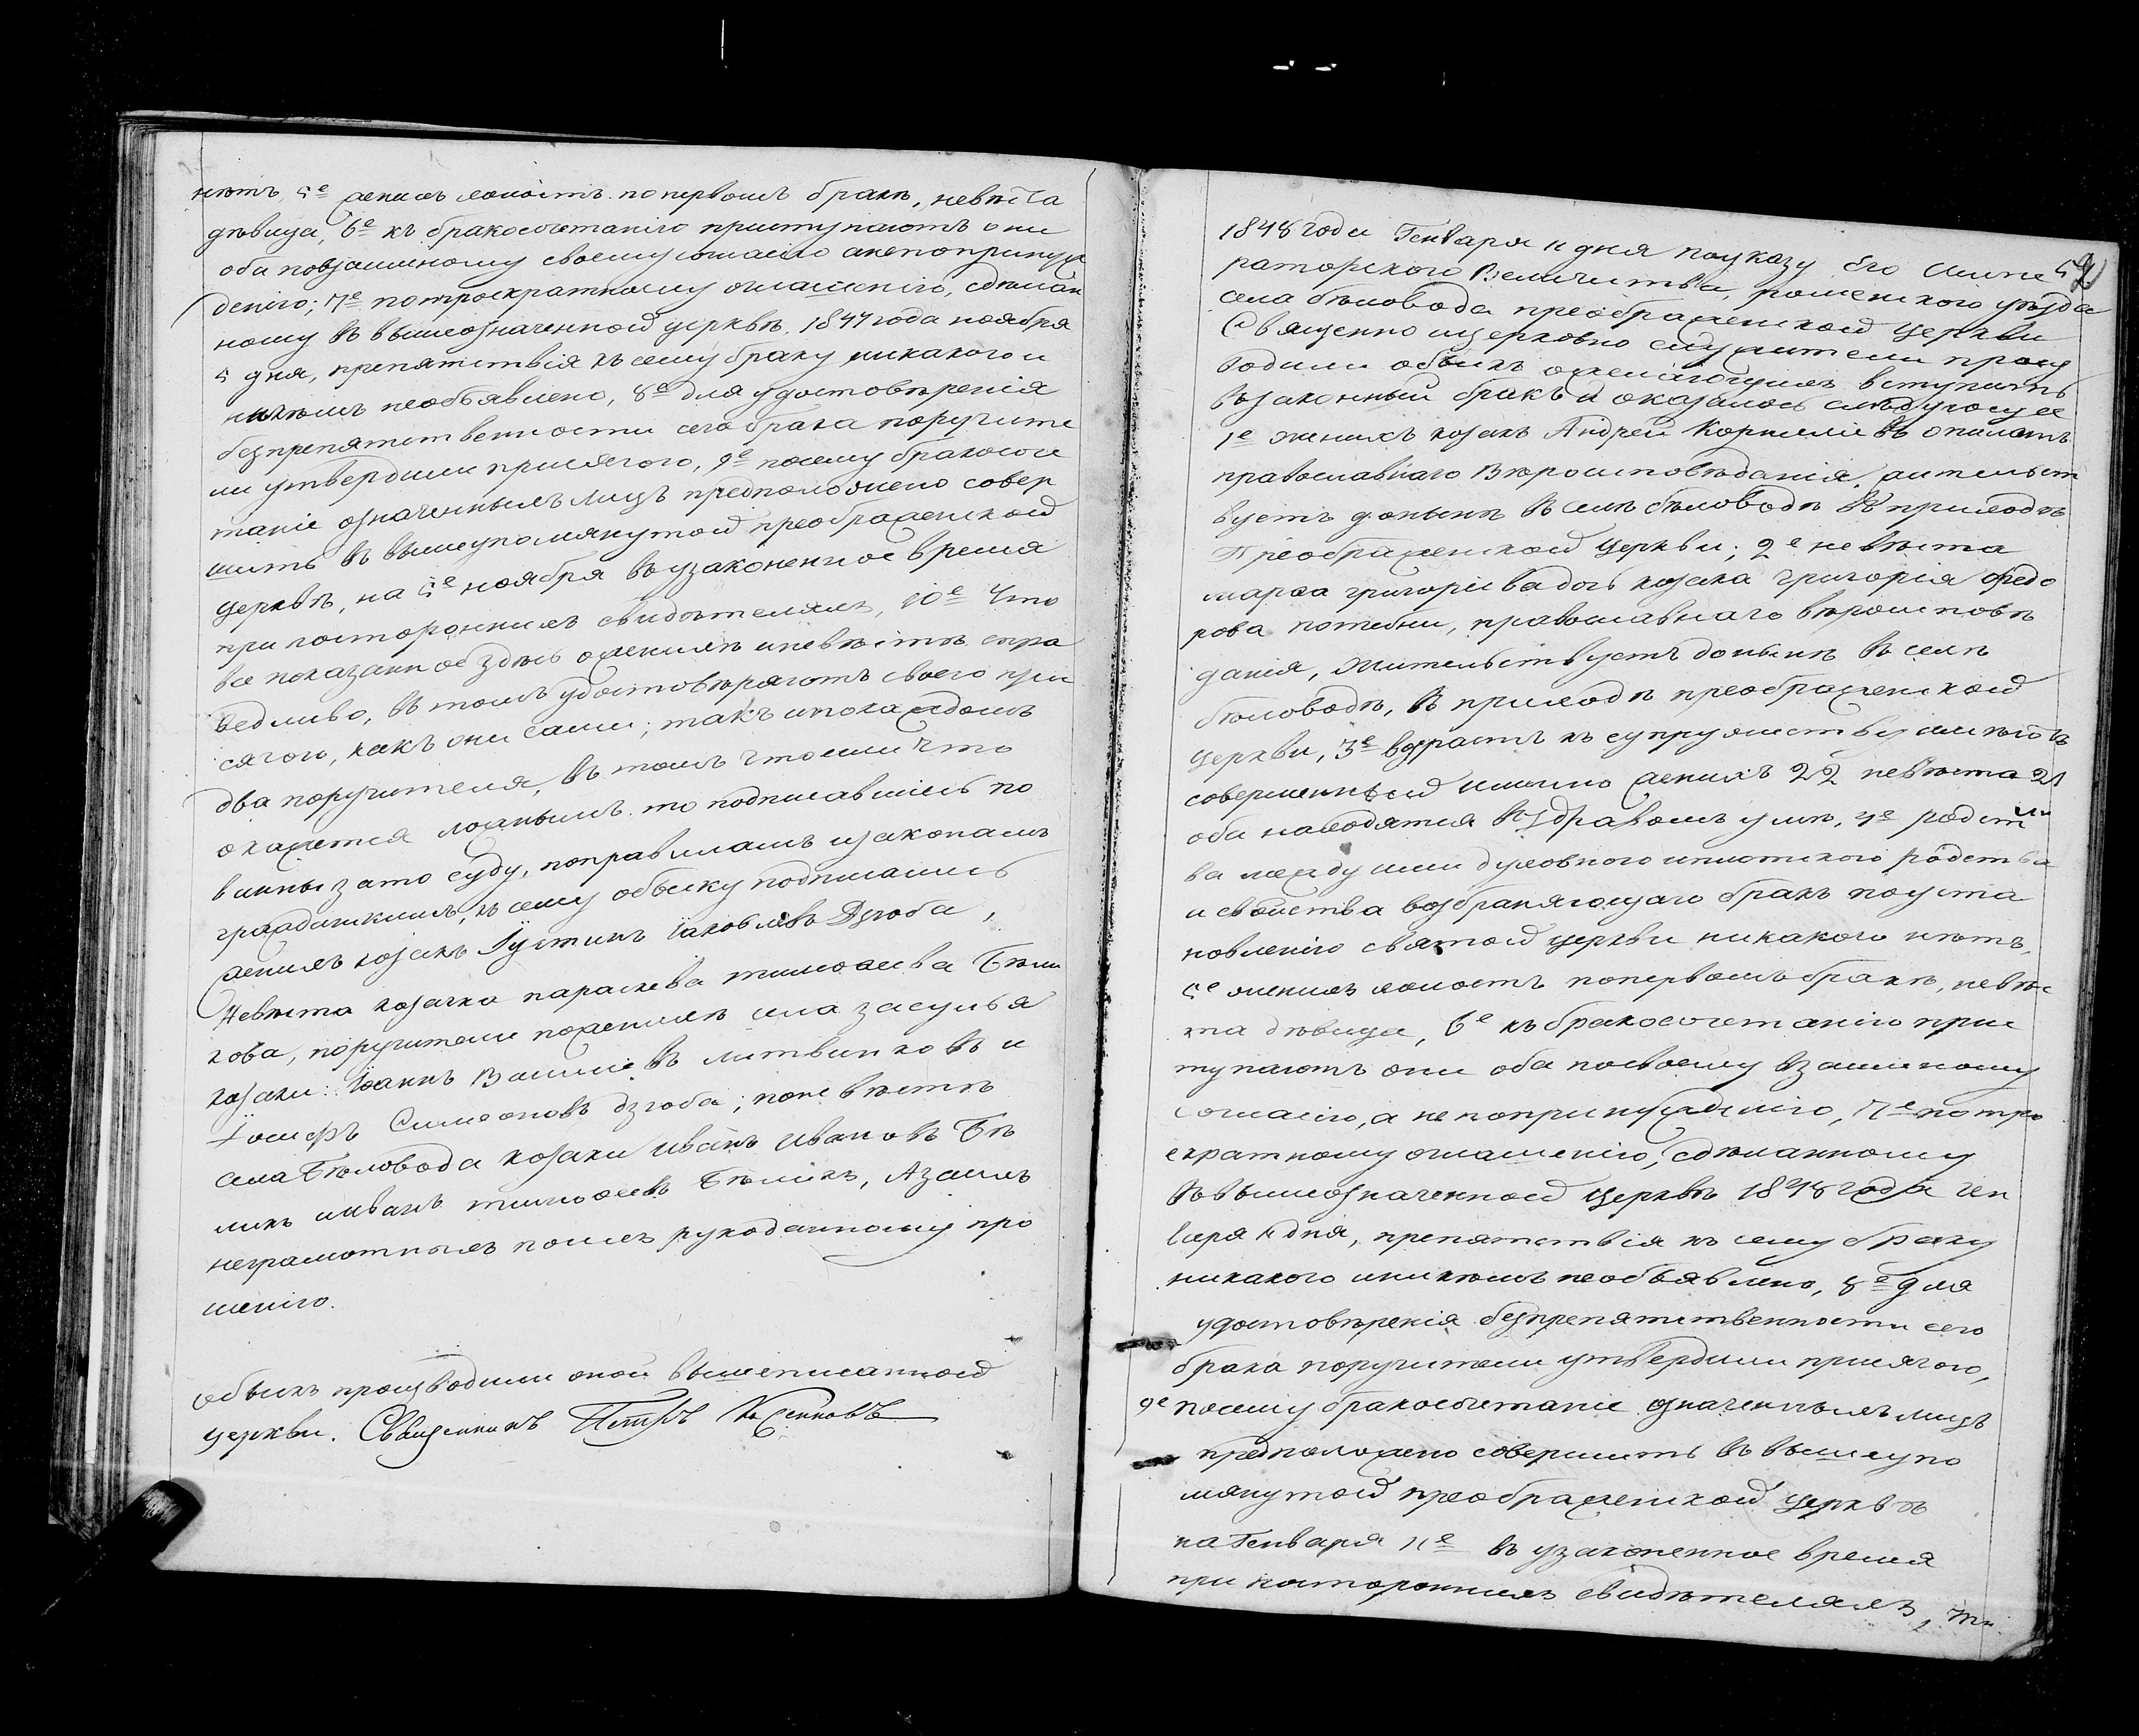 нѣтъ, 5е женихъ холостъ по первомъ бракѣ, невѣста
дѣвица, 6е къ бракосочетанію приступаютъ они
оба повзаимному своему согласію а непопринуж
денію; 7е потроекратному оглашенію, сдѣлан
ному въ вышеозначенной церквѣ 1847 года ноября
5 дня, препятствія къ сему браку никакого и
никѣмъ необъявлено, 8е для удостовѣренія
безпрепятственности сего брака поручите
ли утвердили присягою, 9е посему бракосоч
таніе означенныхъ лицъ предположено совер
шить въ вышеупомянутой преображенской
церквѣ, на 5е ноября въ узаконенное время
при постороннихъ свидѣтеляхъ, 10е Что
все показанное здѣсь о женихѣ и невѣстѣ спра
ведливо, въ томъ удостовѣряютъ своего при
сягою, какъ они сами; такъ и по каждомъ
два поручителя, въ томъ что если что
окажется ложнымъ то подписавшіесь по
винны за то суду, по правиламъ и законамъ
гражданскимъ, къ сему обыску подписались
женихъ козакъ Іустинъ Іаковлевъ Дзюба,
Невѣста козачка параскева тимофеева Бѣли
кова, поручители по женихѣ села засулья
козаки: Іоаннъ Василіевъ литвинковъ и
Іосифъ Симеоновъ дзюба; по невѣстѣ
села Бѣловода козаки Иванъ Ивановъ Бѣ
ликъ и иванъ тимофеевъ Бѣликъ, А за ихъ
неграмотныхъ по ихъ рукоданному про
шенію.
обыскъ производили оной вышеписанной
церкви. Священникъ Петръ
52
1848 года Генваря 11 дня по указу Его Импе
раторского Величества, роменского уѣзда
села бѣловода преображенской церкви
Священно и церковно служители произ
водили обыскъ о желающихъ вступить
въ законный бракъ и оказалось слѣдующее
1е женихъ козакъ Андрей Корниліевъ
православнаго Вѣроисповѣданія. жительст
вуетъ донынѣ въ селѣ бѣловодѣ въ приходѣ
Преображенской Церкви; 2е невѣста
марфа григоріева дочь козака григорія федо
рова потебни, православнаго вѣроисповѣ
данія, жительствуетъ донынѣ въ селѣ
бѣловодѣ, въ приходѣ преображенской
церкви, 3е возрастъ къ супружеству имѣютъ
совершенный имянно женихъ 22 невѣста 21
оба находятся въ здравомъ умѣ, 4е родст
ва между ими духовного и плотского родства
и свойства возбраняющаго бракъ по уста
новленію святой церкви никакого нѣтъ,
5е женихъ холостъ по первомъ бракѣ, невѣс
та дѣвица, 6е къ бракосочетанію прис
тупаютъ они оба по своему взаимному
согласію, а не по принужденію, 7е по тро
екратному оглашенію, сдѣланному
въ вышеозначенной церквѣ 1848 года Ген
варя 11 дня, препятствія къ сему браку
никакого и никѣмъ необъявлено, 8е для
удостовѣренія безпрепятственности сего
брака поручители утвердили присягою,
9е посему бракосочетаніе означенныхъ лицъ
предположено совершить въ вышеупо
мянутой преображенской церквѣ
на Генваря 11е въ узаконенное время
при постороннихъ свидѣтеляхъ,